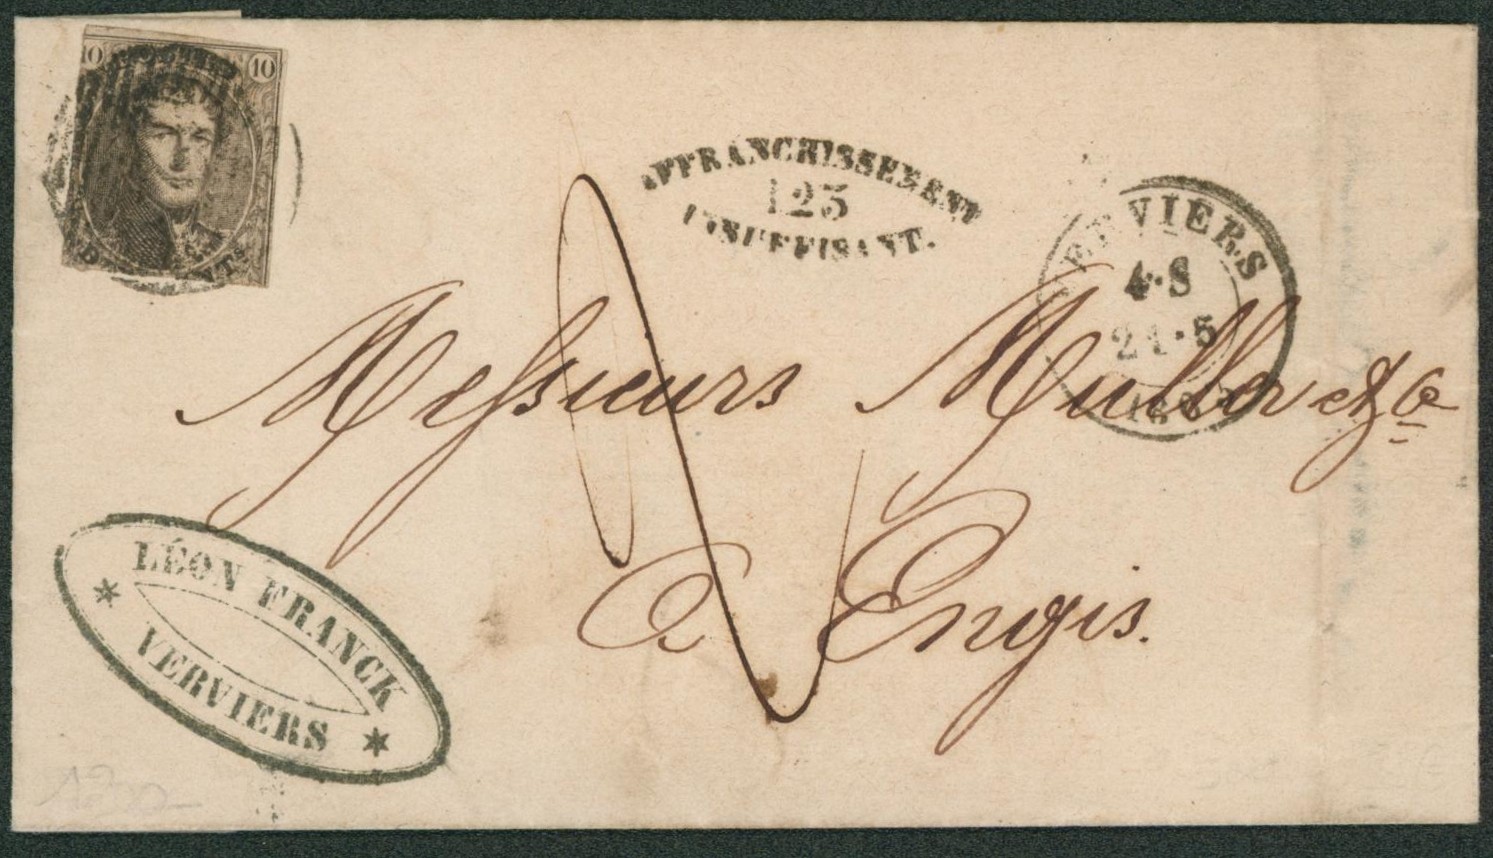 10 10
AFFRANCHISSEMENT
123
INSUFFISANT.
VERVIERS
4·S
21·5
Messieurs Muller et Cie
à Engis.
LÉON FRANCK
VERVIERS